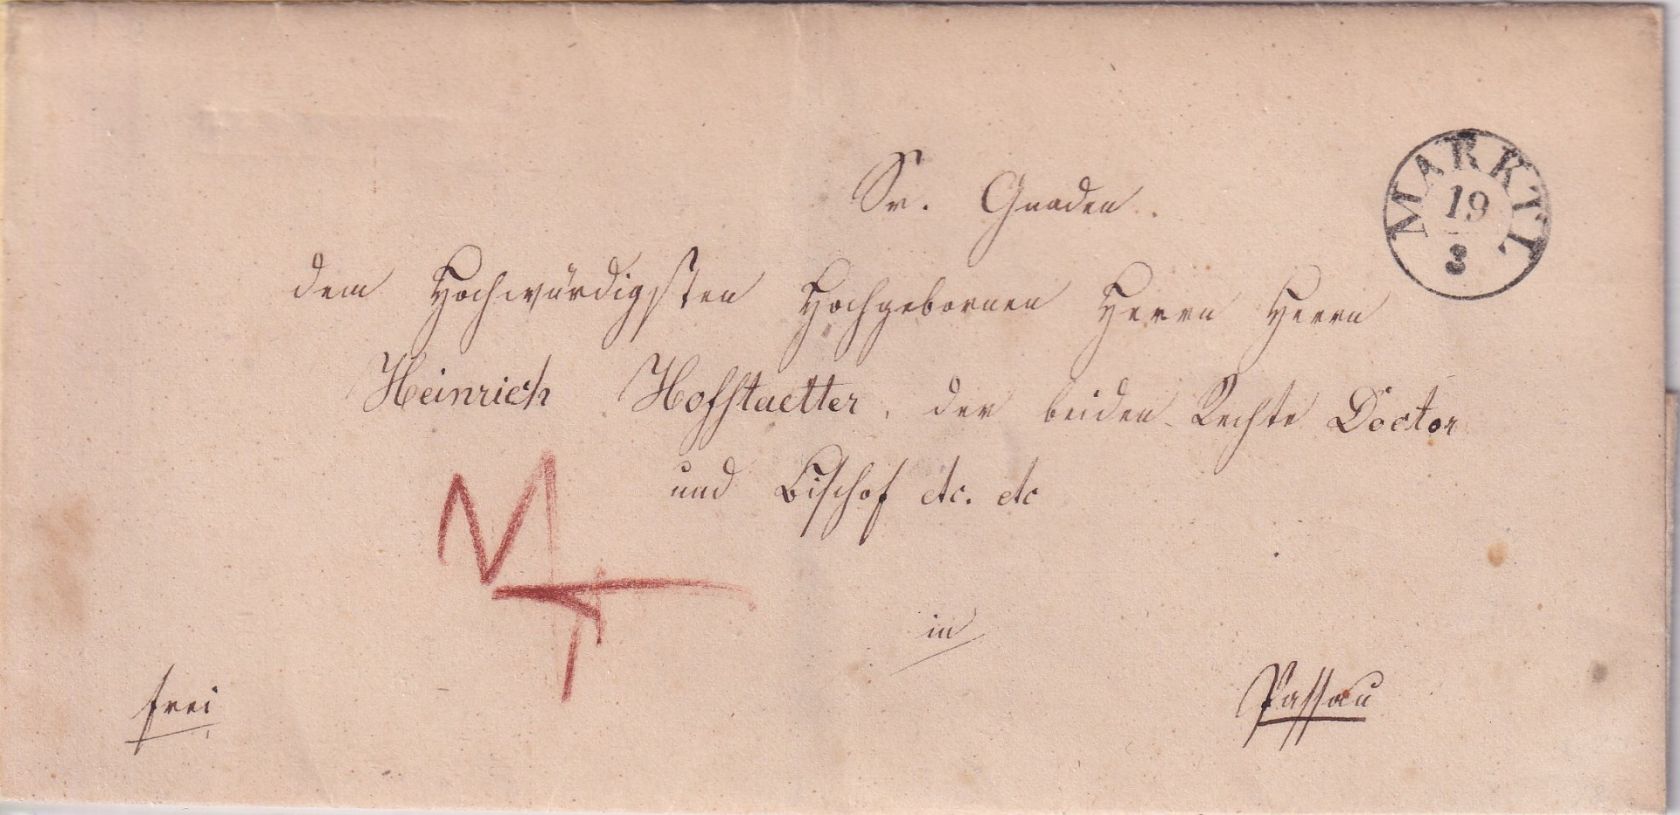 MARKTL
19
3
Sr. Gnaden.
dem Hochwürdigsten Hochgebornen Herrn Herrn
Heinrich Hofstaetter, der beiden Rechte Doctor
und Bischof etc. etc
in
Passau
frei